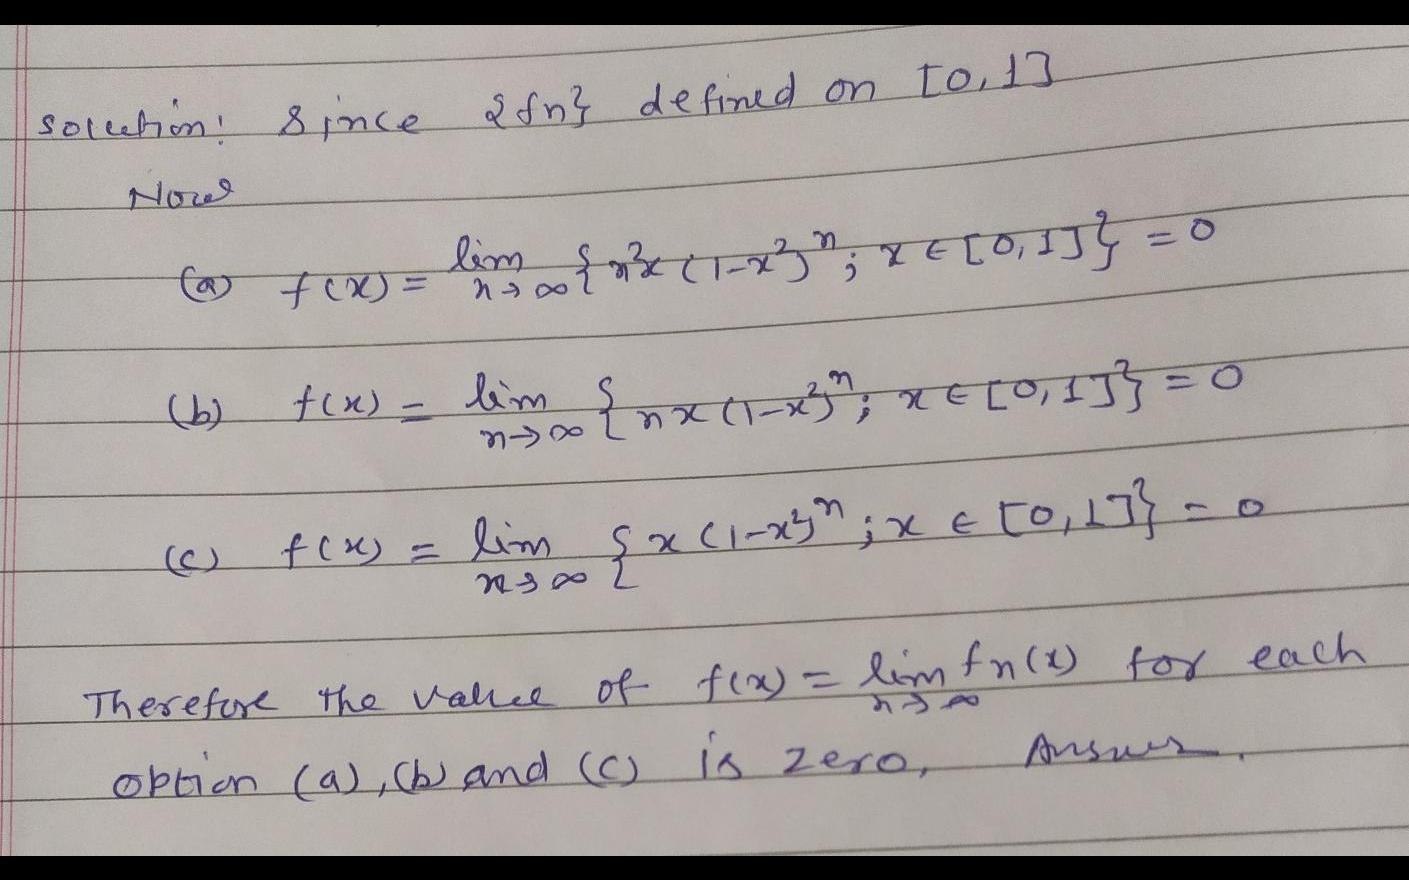 Solution: Since {fn} defined on [0,1]
Now
(a) f(x) = lim n→∞ { n²x (1-x²)ⁿ ; x ∈ [0,1]} = 0
(b) f(x) = lim n→∞ { nx (1-x²)ⁿ ; x ∈ [0,1]} = 0
(c) f(x) = lim n→∞ { x (1-x²)ⁿ ; x ∈ [0,1]} = 0
Therefore the value of f(x) = lim n→∞ fn(x) for each
option (a), (b) and (c) is zero, Answer.